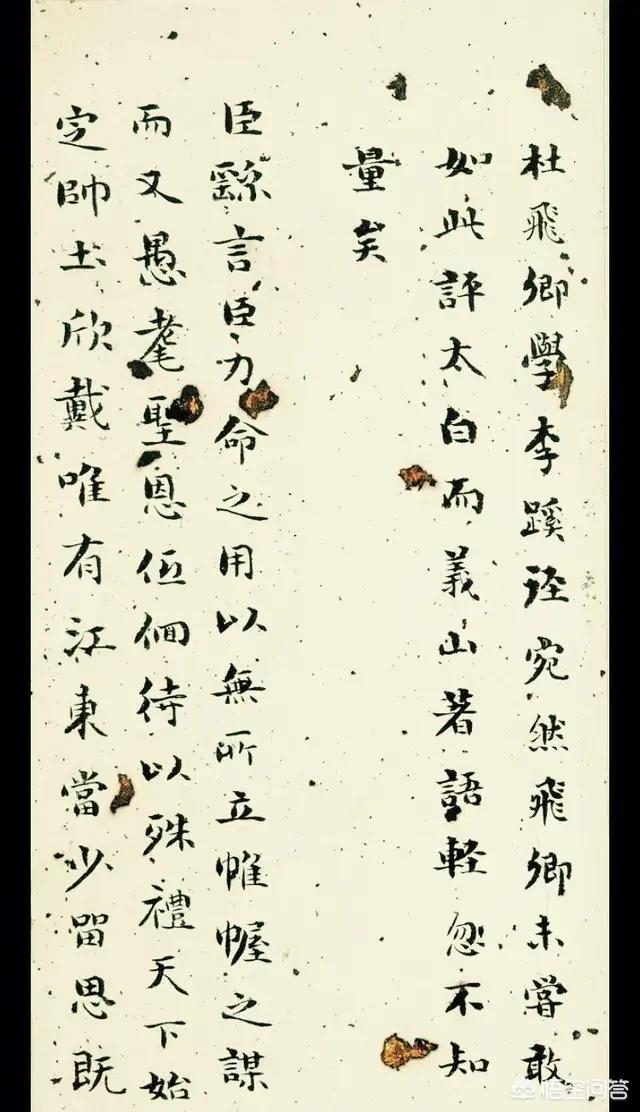 杜飛卿學李蹊径宛然飛卿未嘗敢
如此評太白而義山著語軽忽不知
量矣
臣繇言臣力命之用以無所立帷幄之謀
而又愚耄聖恩低佪待以殊禮天下始
定帥土欣戴唯有江東當少留思既
悟空问答